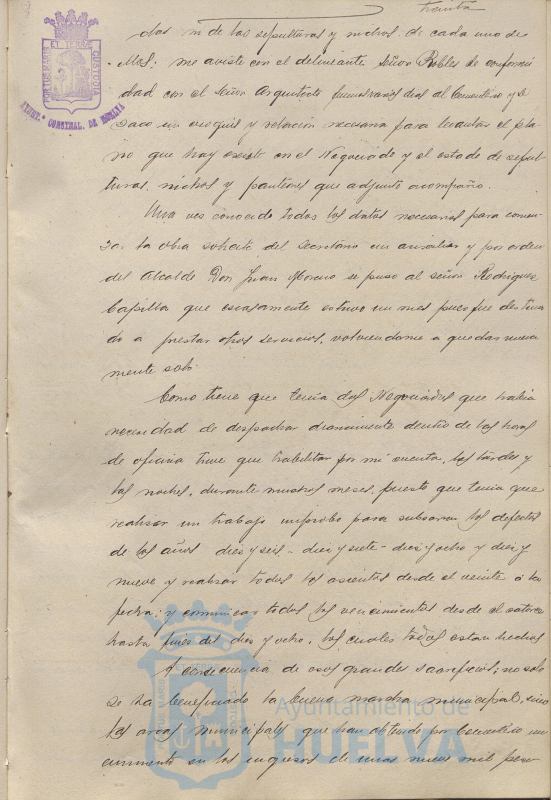 treinta
PORTUS MARIS ET TERRÆ CUSTODIA
AYUNT.º CONSTNAL. DE HUELVA
dos m de las sepulturas y nichos de cada uno de
ellos; me avisté con el delineante Señor Robles de conformi
dad con el Señor Arquitecto fuimos varios dias al Cementerio y se
saco un croquis y relación necesaria para levantar el pla
no que hay expuesto en el Negociado y el estado de sepul
turas, nichos y panteones que adjunto acompaño.
Una ves conocido todos los datos necesarios para comen
zar la obra solicité del Secretario un auxiliar y por orden
del Alcalde Don Juan Moreno se puso al señor Rodriguez
Casilla que escasamente estuvo un mes pues fue destina
do a prestar otros servicios, volviendome a quedar nueva
mente solo.
Como tiene que tenia dos Negociados que habia
necesidad de despachar diariamente dentro de las horas
de oficina tuve que habilitar por mi cuenta, las tardes y
las noches, durante muchos meses, puesto que tenia que
realizar un trabajo improbo para subsanar los defectos
de los años diez y seis - diez y siete - diez y ocho y diez y
nueve y realizar todos los asientos desde el veinte á la
fecha; y comunicar todos los vencimientos desde el catorce
hasta fines del diez y ocho, los cuales todos estan hechos
A consecuencia de esos grandes sacrificios; no solo
se ha beneficiado la buena marcha municipal, sino
las arcas municipales que han obtenido por Cementerio un
aumento en los ingresos de unas nueve mil pese
Ayuntamiento de
HUELVA